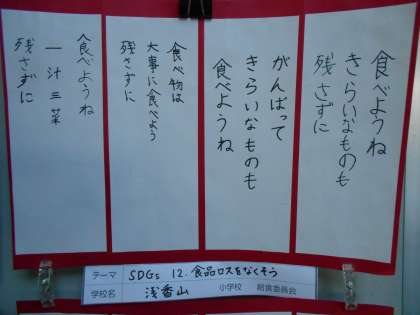 食べようね
きらいなものも
残さずに
がんばって
きらいなものも
食べようね
食べ物は
大事に食べよう
残さずに
食べようね
一汁三菜
残さずに
テーマ SDGs 12.食品ロスをなくそう
学校名 浅香山 小学校 給食委員会